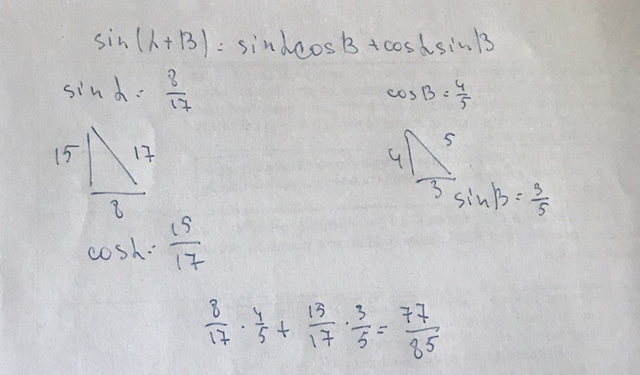 sin(α+β) = sinα cosβ + cosα sinβ
sin α = 8/17
cosβ = 4/5
15 17
8
4 5
3
sinβ = 3/5
cosα = 15/17
8/17 · 4/5 + 15/17 · 3/5 = 77/85